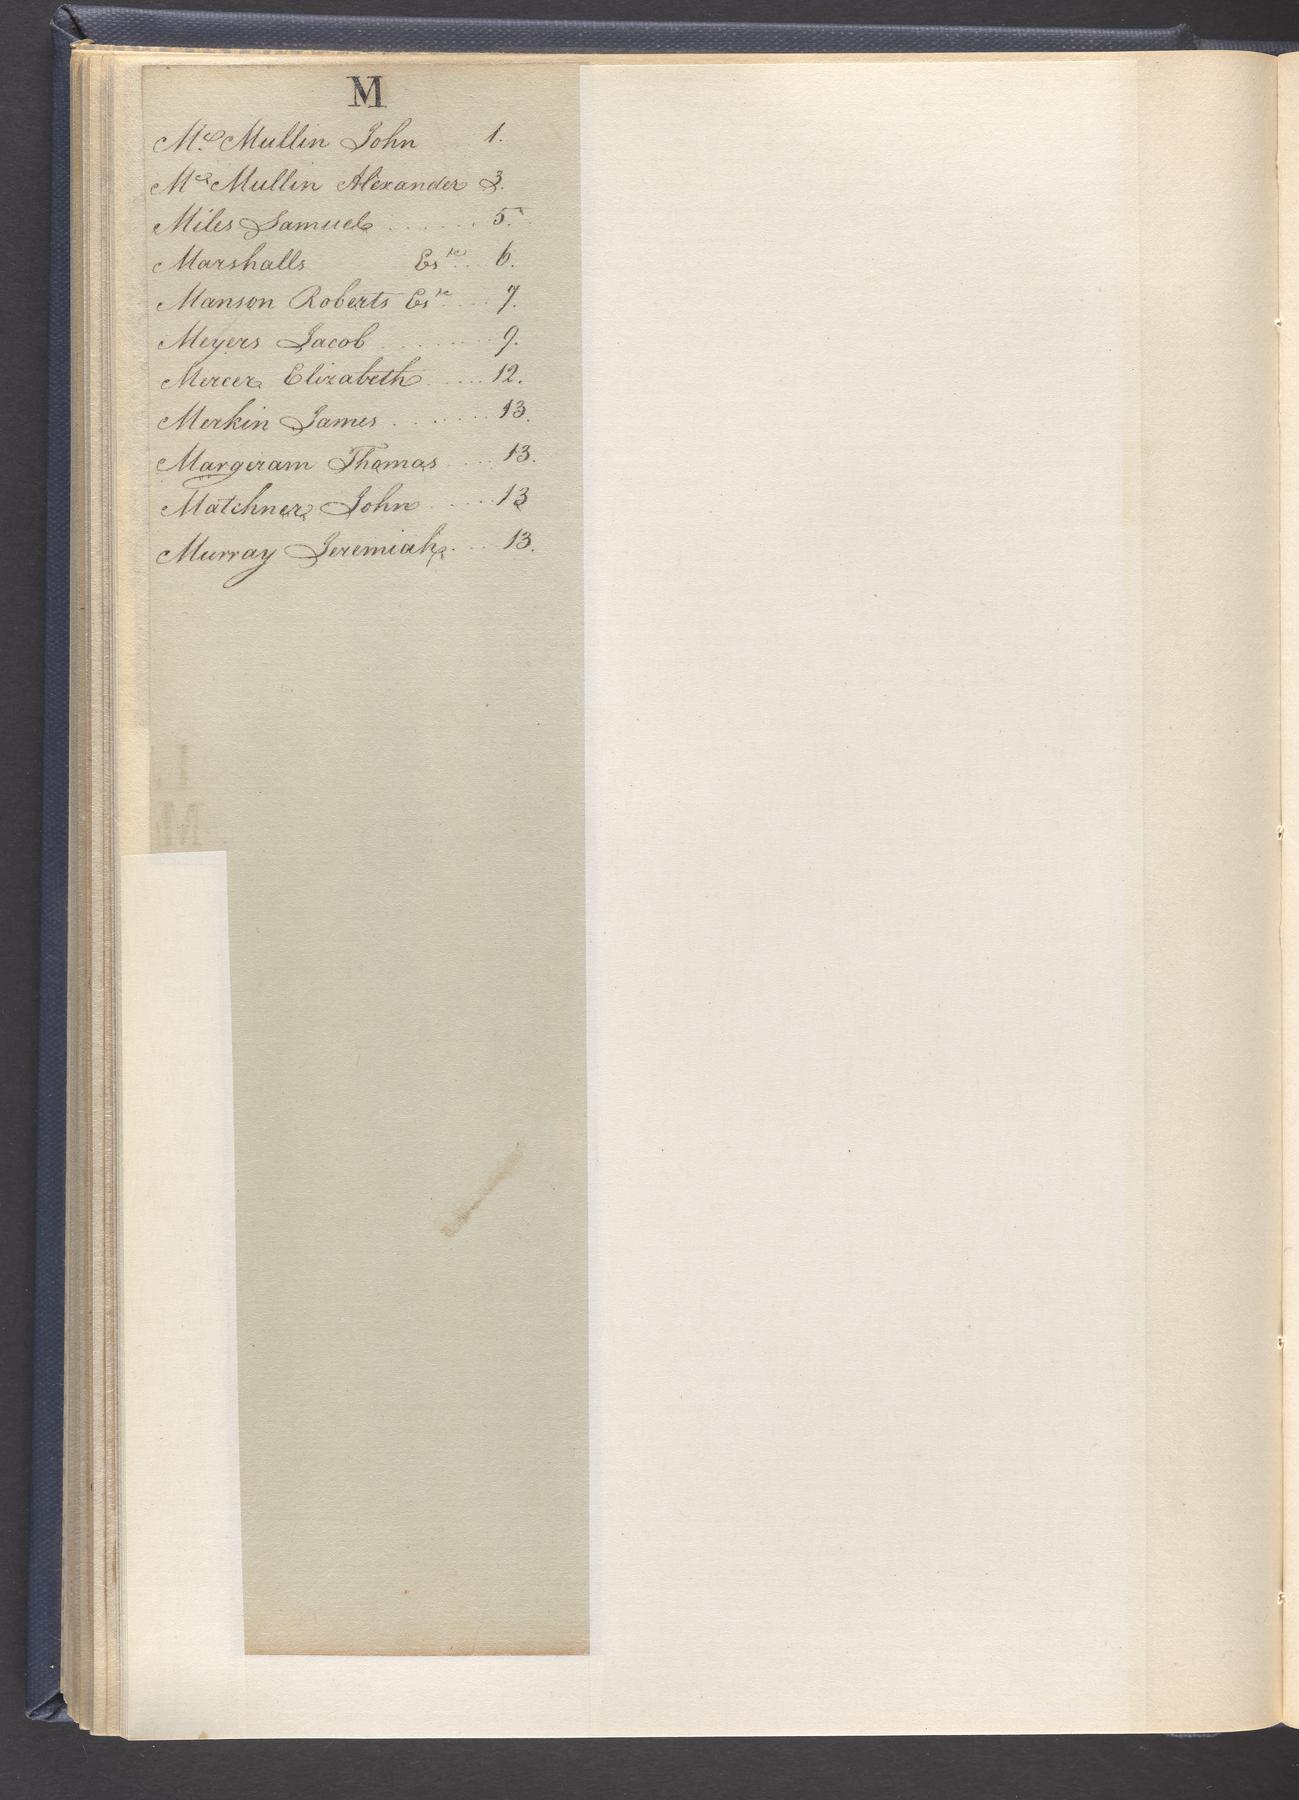 M
Mc. Mullin John 1.
Mc Mullin Alexander 3.
Miles Samuel ....... 5.
Marshalls Este.. 6.
Manson Roberts Este.... 7.
Meyers Jacob ........ 9.
Mercer Elizabeth ..... 12.
Merkin James ....... 13.
Margeram Thomas .... 13.
Matchner John ..... 13
Murray Jeremiah .... 13.
L
M